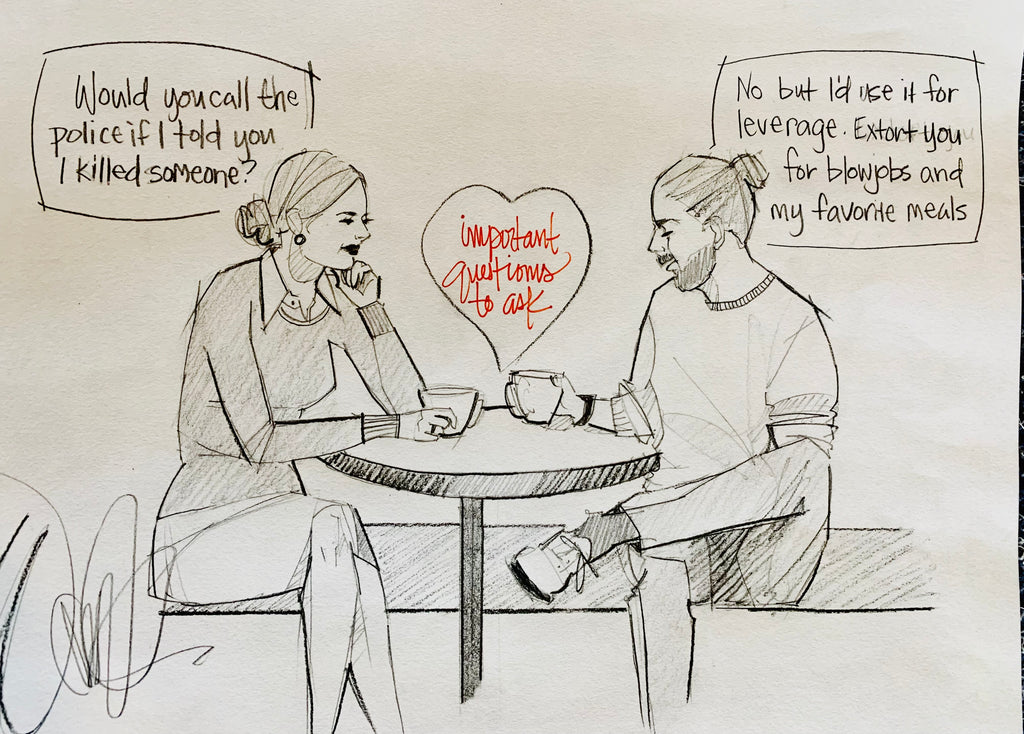 Would you call the
police if I told you
I killed someone?
important
questions
to ask
No but I'd use it for
leverage. Extort you
for blowjobs and
my favorite meals